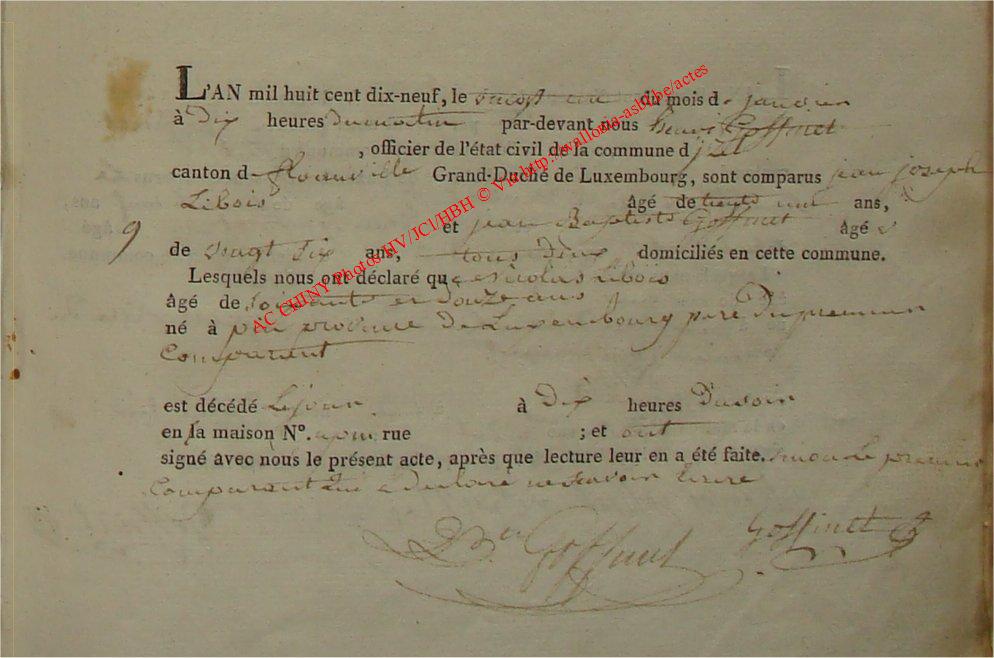 L'AN mil huit cent dix-neuf, le vingt un du mois de janvier
à Dix heures du matin par-devant nous henri Goffinet
, officier de l'état civil de la commune d'izel
canton de florenville Grand-Duché de Luxembourg, sont comparus jean joseph
Libois âgé de trente un ans,
9 et jean Baptiste Goffinet âgé
de vingt six ans, tous deux domiciliés en cette commune.
Lesquels nous ont déclaré que Nicolas Libois
âgé de soixante et douze ans
né à pin province de Luxembourg pere du premier
Comparant
est décédé à Dix heures Dusoir
en la maison N°. rue ; et ont
signé avec nous le présent acte, après que lecture leur en a été faite. sinon le premier
Comparant qui a declaré
Goffinet Goffinet
AC CHINY Photos HV/JCl/HBH © Via http://wallonia-asbl.be/actes